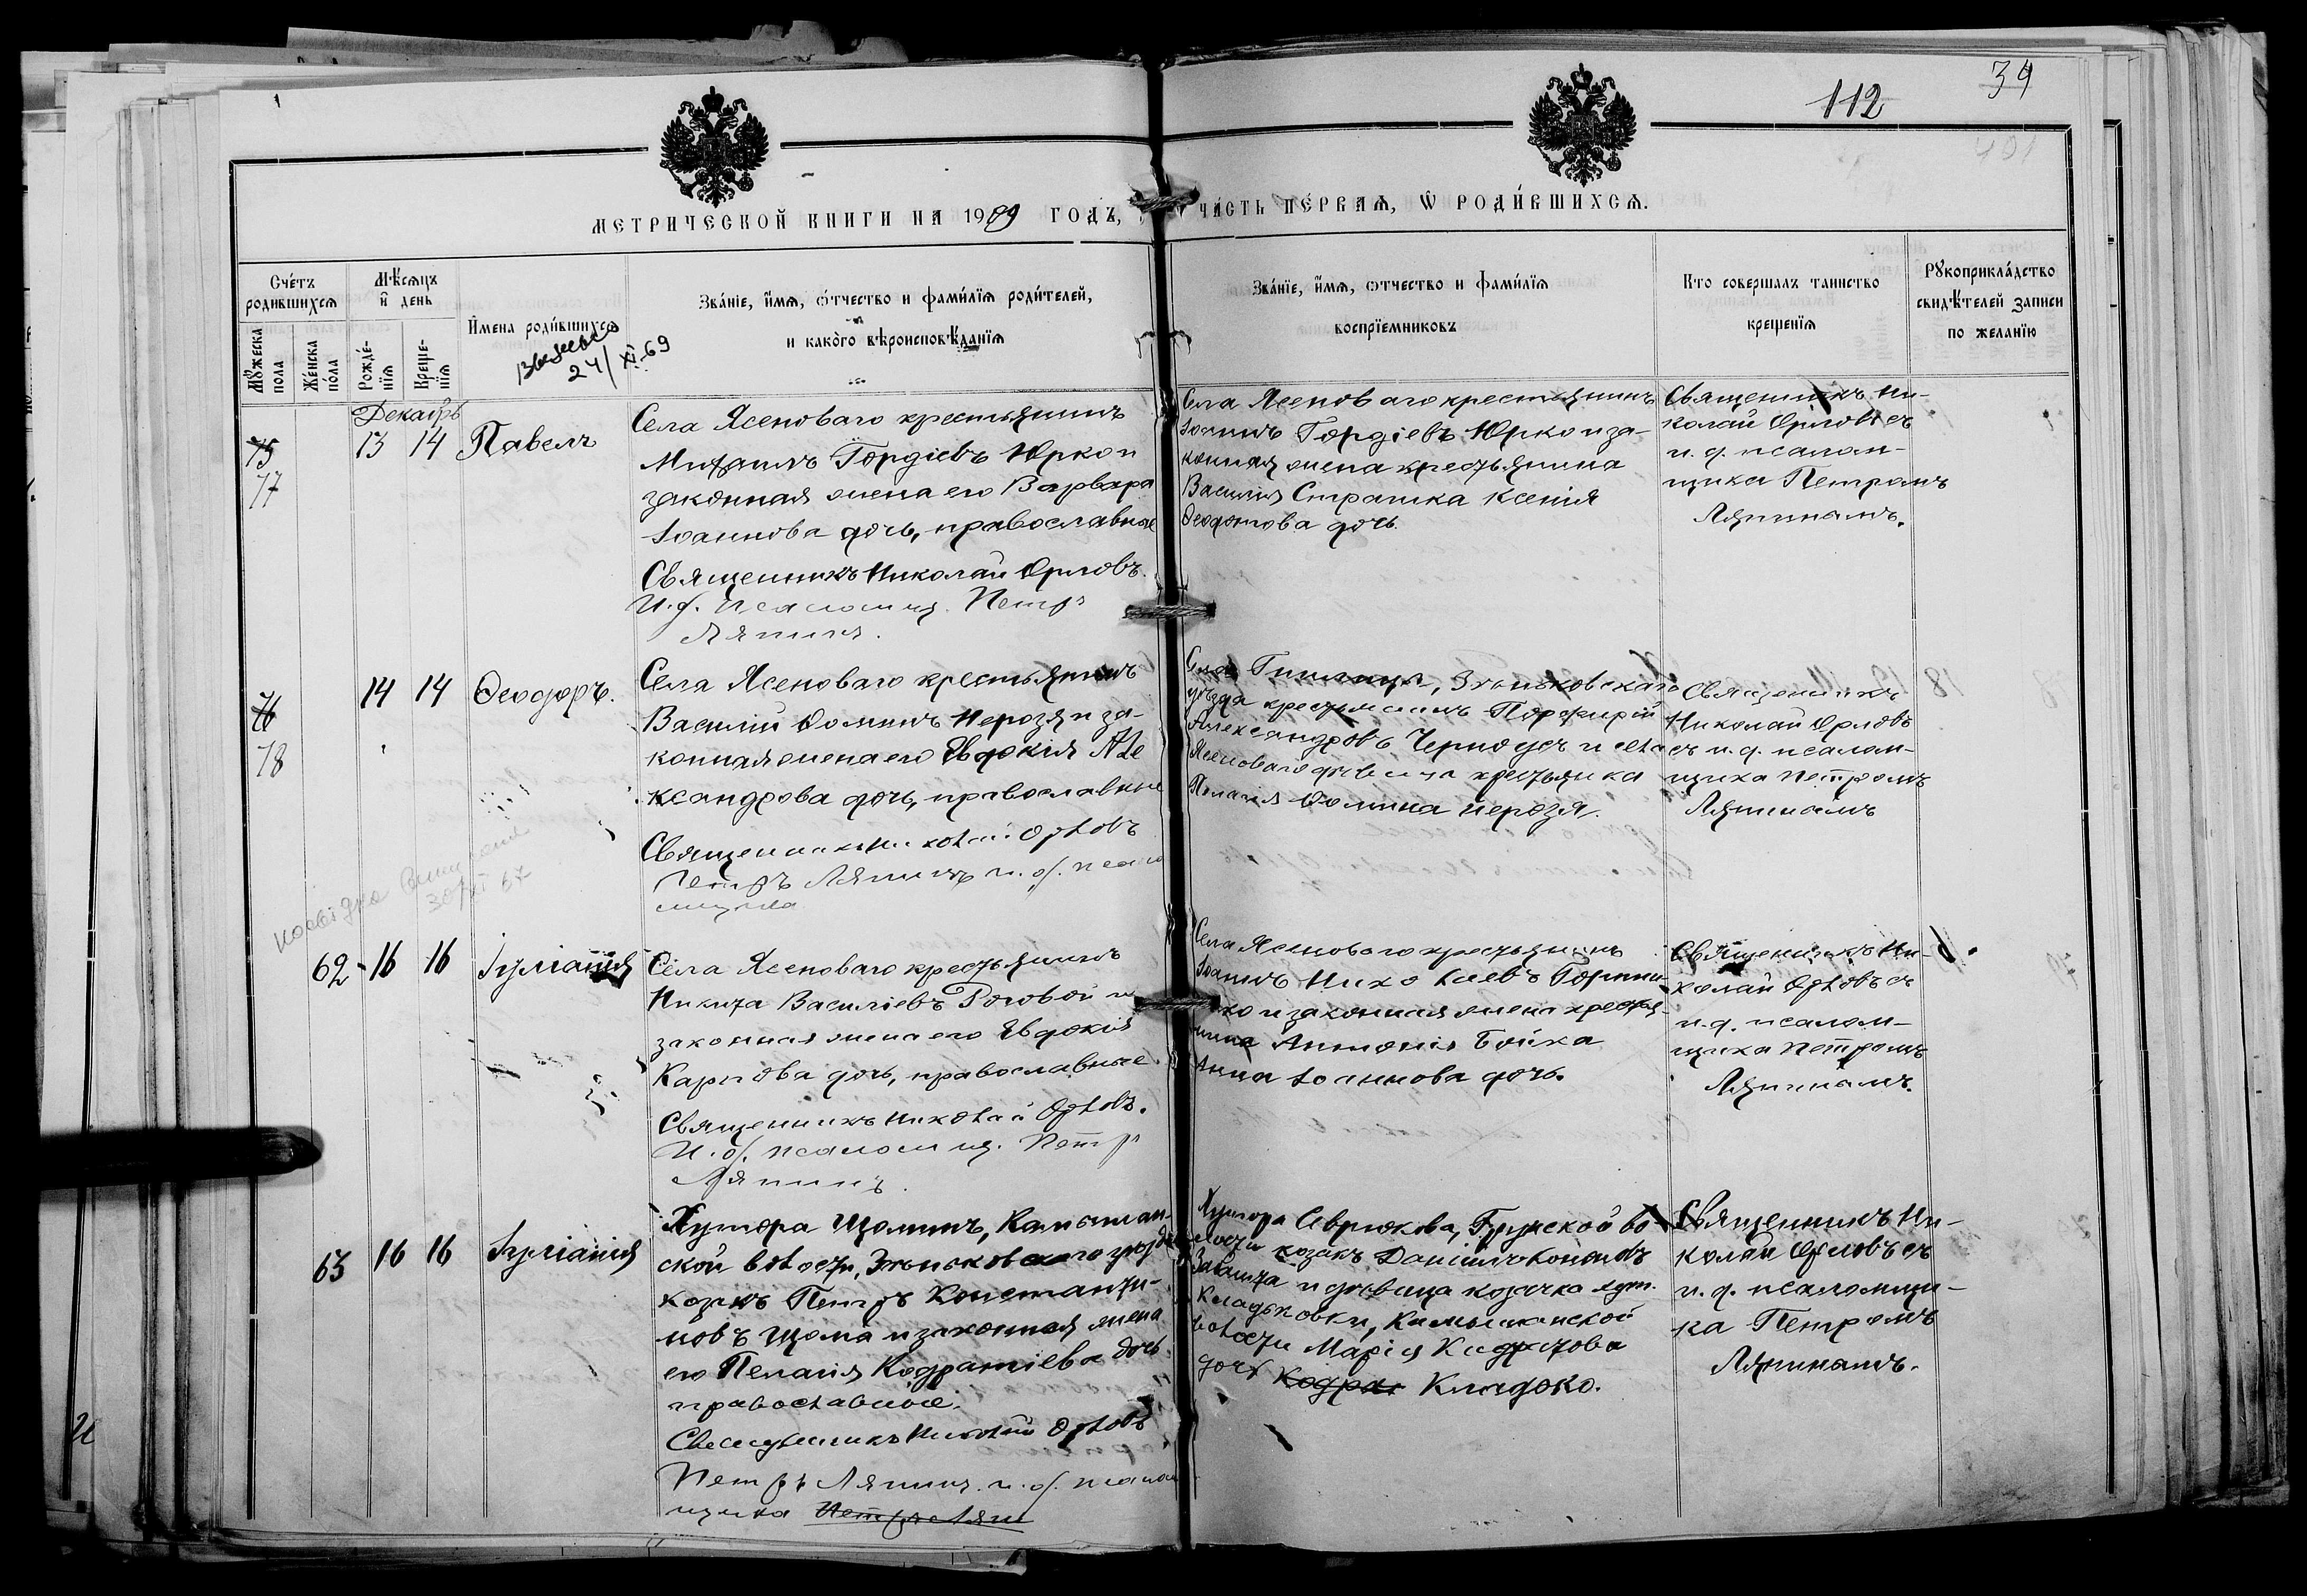 112
34
МЕТРИЧЕСКОЙ КНИГИ НА 1909 ГОДЪ,
ЧА́СТЬ ПЕ́РВАѦ, Ѡ РОДИ́ВШИХСѦ.
Счетъ родившихся
Мѣсяцъ и день
Мужеска пола
Женска пола
Рожденія
Крещенія
Имена родившихся
24/XI-69
Званіе, имя, отчество и фамилія родителей,
и какого вѣроисповѣданія
Званіе, имя, отчество и фамилія
воспріемниковъ
Кто совершалъ таинство
крещенія
Рукоприкладство
свидѣтелей записи
по желанію
Декабрь
75
77
13 14 Павелъ
Села Ясеноваго крестьянинъ
Михаилъ Гордіевъ Юрко и
законная жена его Варвара
Іоаннова дочь, православные
Священникъ Николай Орловъ.
И. об. псаломщ. Петръ
Ляпинъ.
Села Ясеноваго крестьянинъ
Іоаннъ Гордіевъ Юрко и за-
конная жена крестьянина
Василія Страшка Ксенія
Ѳеодотова дочь.
Священникъ Ни-
колай Орловъ съ
и. д. псалом-
щика Петромъ
Ляпинамъ.
76
78
14 14 Ѳеодоръ.
Села Ясеноваго крестьянинъ
Василій Ѳоминъ Нерозя и за-
конная жена его Евдокія Але
ксандрова дочь, православные
Священникъ Николай Орловъ
Петръ Ляпинъ и. об. псало
мщика
Села
Зѣньковскаго
уѣзда крестьянинъ Порфирій
Александровъ Черноусъ и села
Ясеноваго дѣвица крестьянка
Пелагія Ѳомина Нерозя.
Священникъ
Николай Орловъ
съ и. д. псалом-
щика Петромъ
Ляпинамъ
62 16 16 Іуліанія
Села Ясеноваго крестьянинъ
Никита Василіевъ Роговой и
законная жена его Евдокія
Карпова дочь, православные.
Священникъ Николай Орловъ.
И. об. псаломщ. Петръ
Ляпинъ.
Села Ясеноваго крестьянинъ
Іоаннъ Николаевъ
и законная жена крестья-
нина Антонія Бойка
Анна Іоаннова дочь.
Священникъ Ни-
колай Орловъ съ
и. д. псалом-
щика Петромъ
Ляпинамъ.
63 16 16 Іуліанія
Хутора Щоминъ, Камышан-
ской волости, Зѣньковскаго уѣзда
козакъ Петръ Константи-
новъ Щома и законная жена
его Пелагія Кодратіева дочь
православные.
Священникъ Николай Орловъ
Петръ Ляпинъ и. об. псалом
щика Петръ Ляп
Хутора Саврюкова, Грунской во-
лости козакъ Даніилъ Кононовъ
и дѣвица козачка хут.
Кладьковки, Камышанской
волости Марія
дочь Кодра Кладько.
Священникъ Ни-
колай Орловъ съ
и. д. псаломщи-
ка Петромъ
Ляпинамъ.